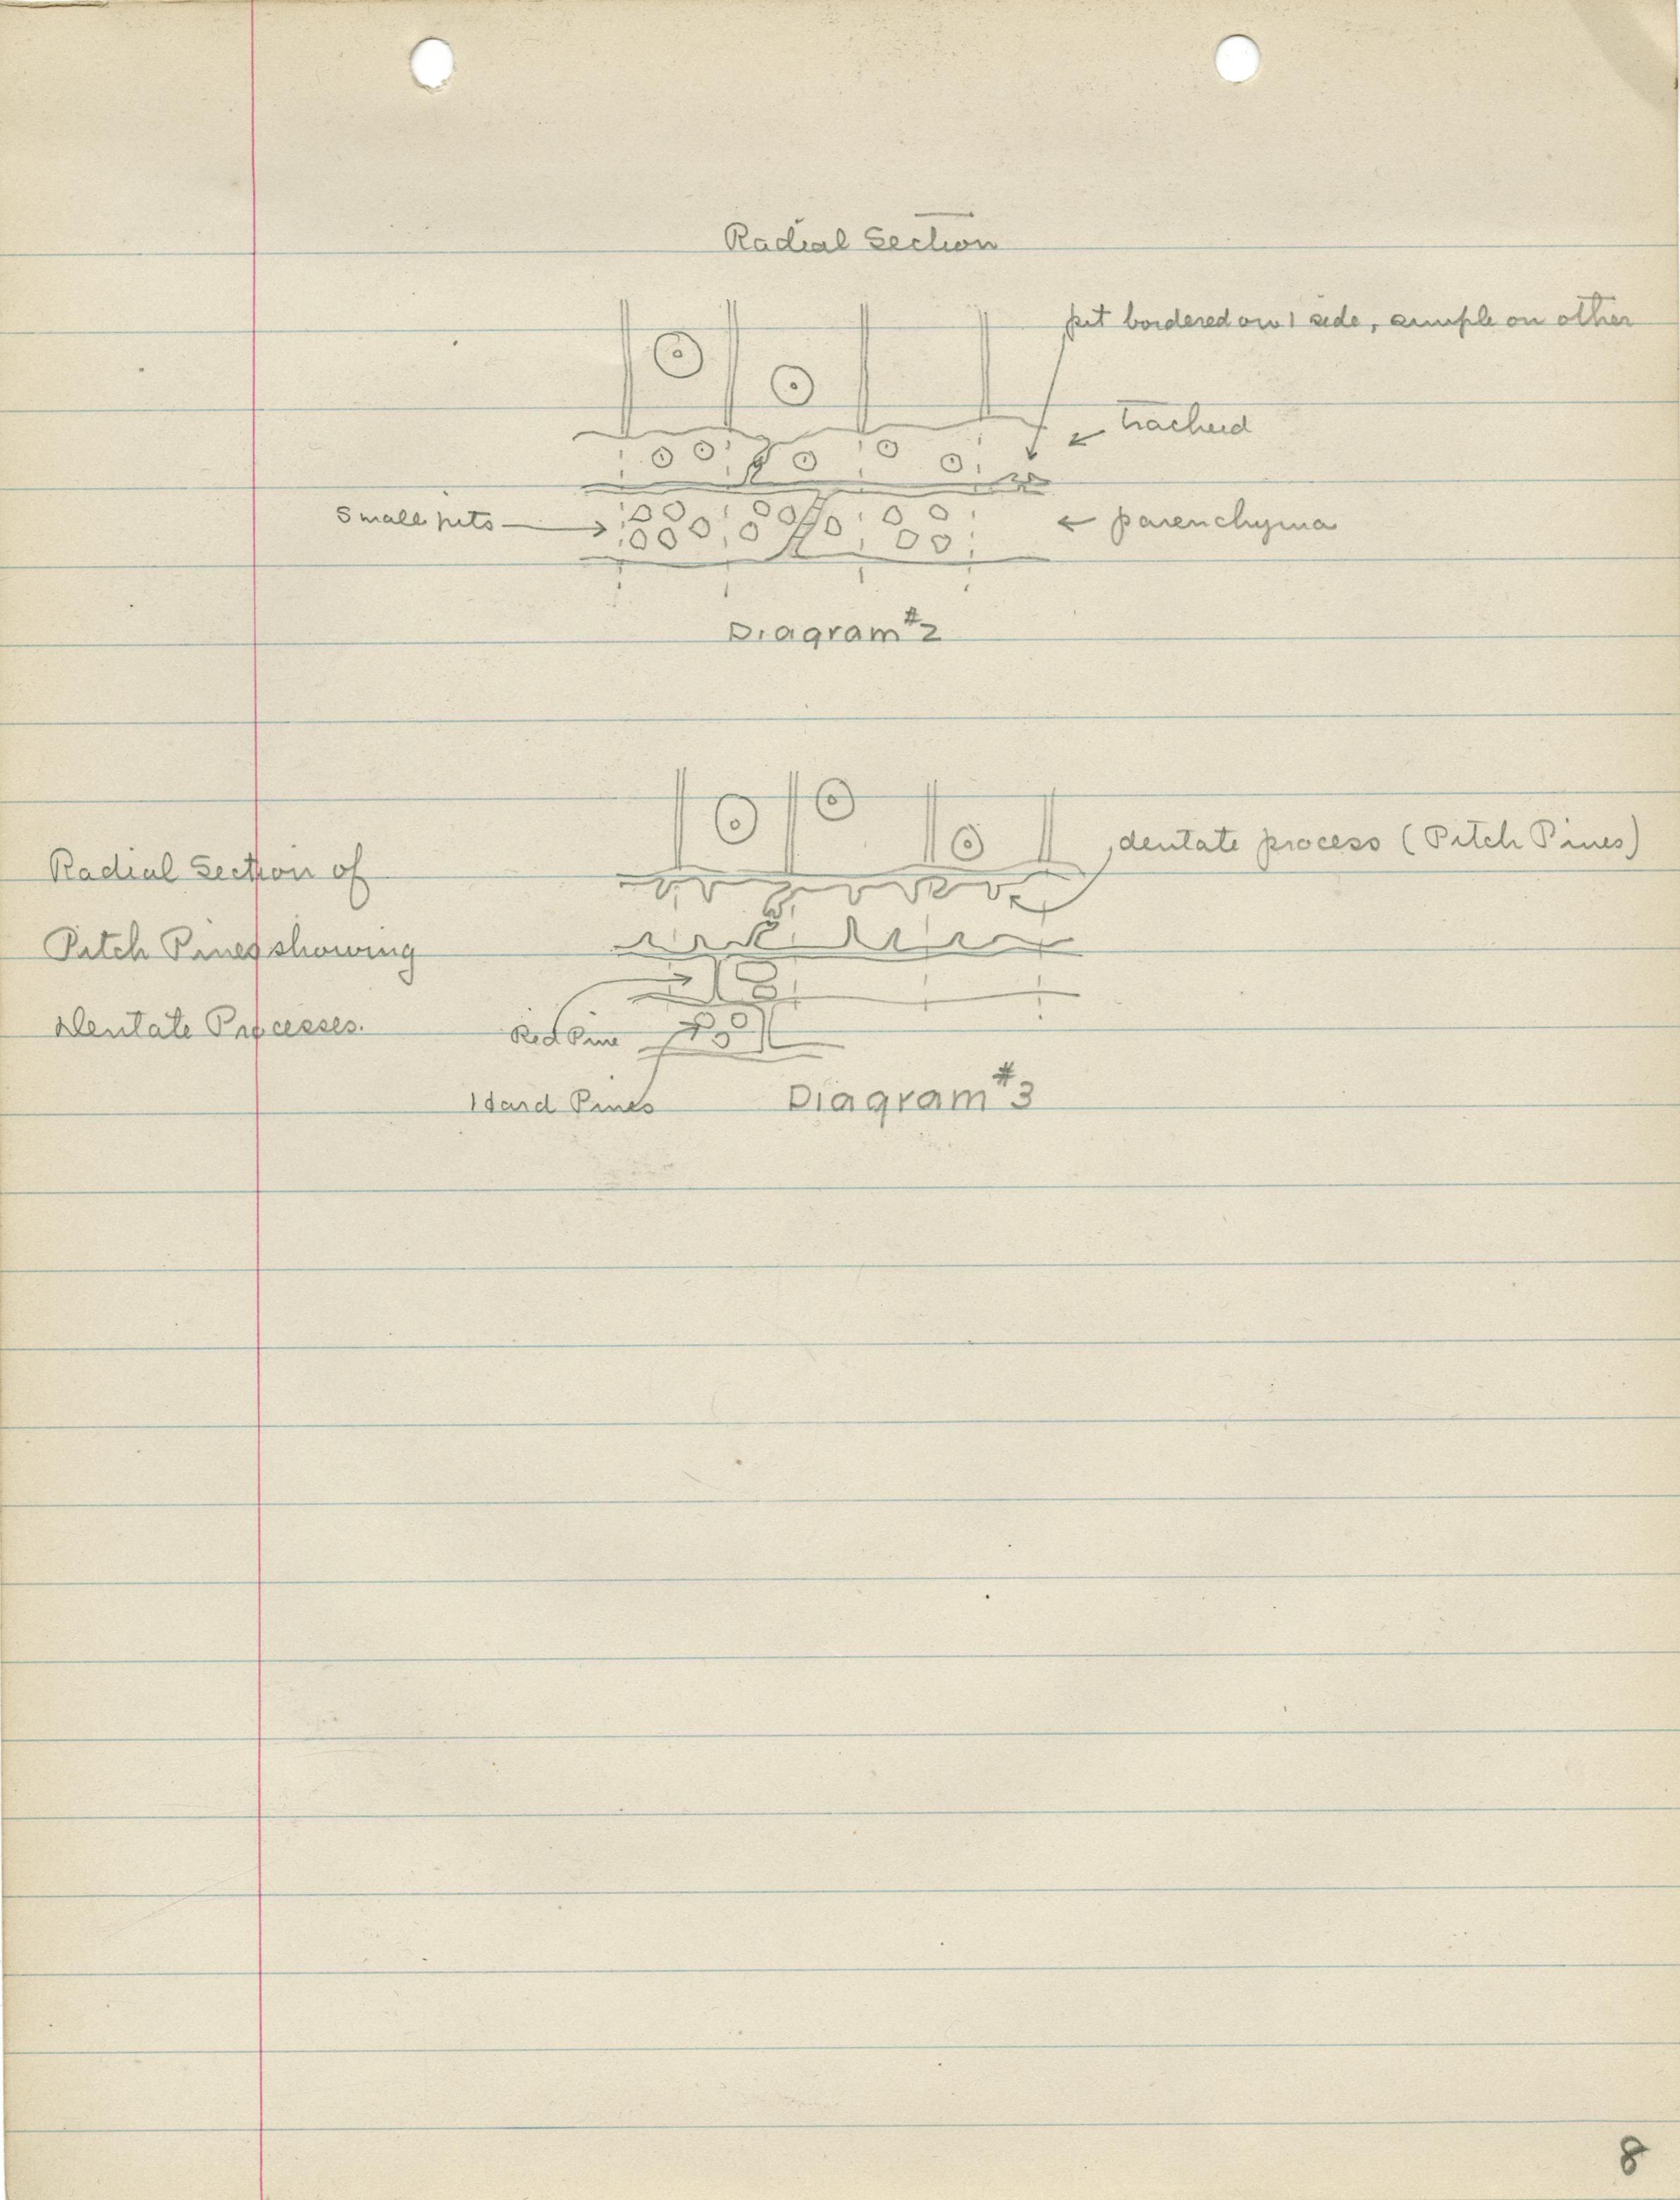 Radial Section
pit bordered on 1 side, simple on other
tracheid
Small pits
parenchyma
Diagram #2
dentate process (Pitch Pines)
Radial Section of
Pitch Pines showing
dentate Processes.
Red Pine
Hard Pines
Diagram #3
8